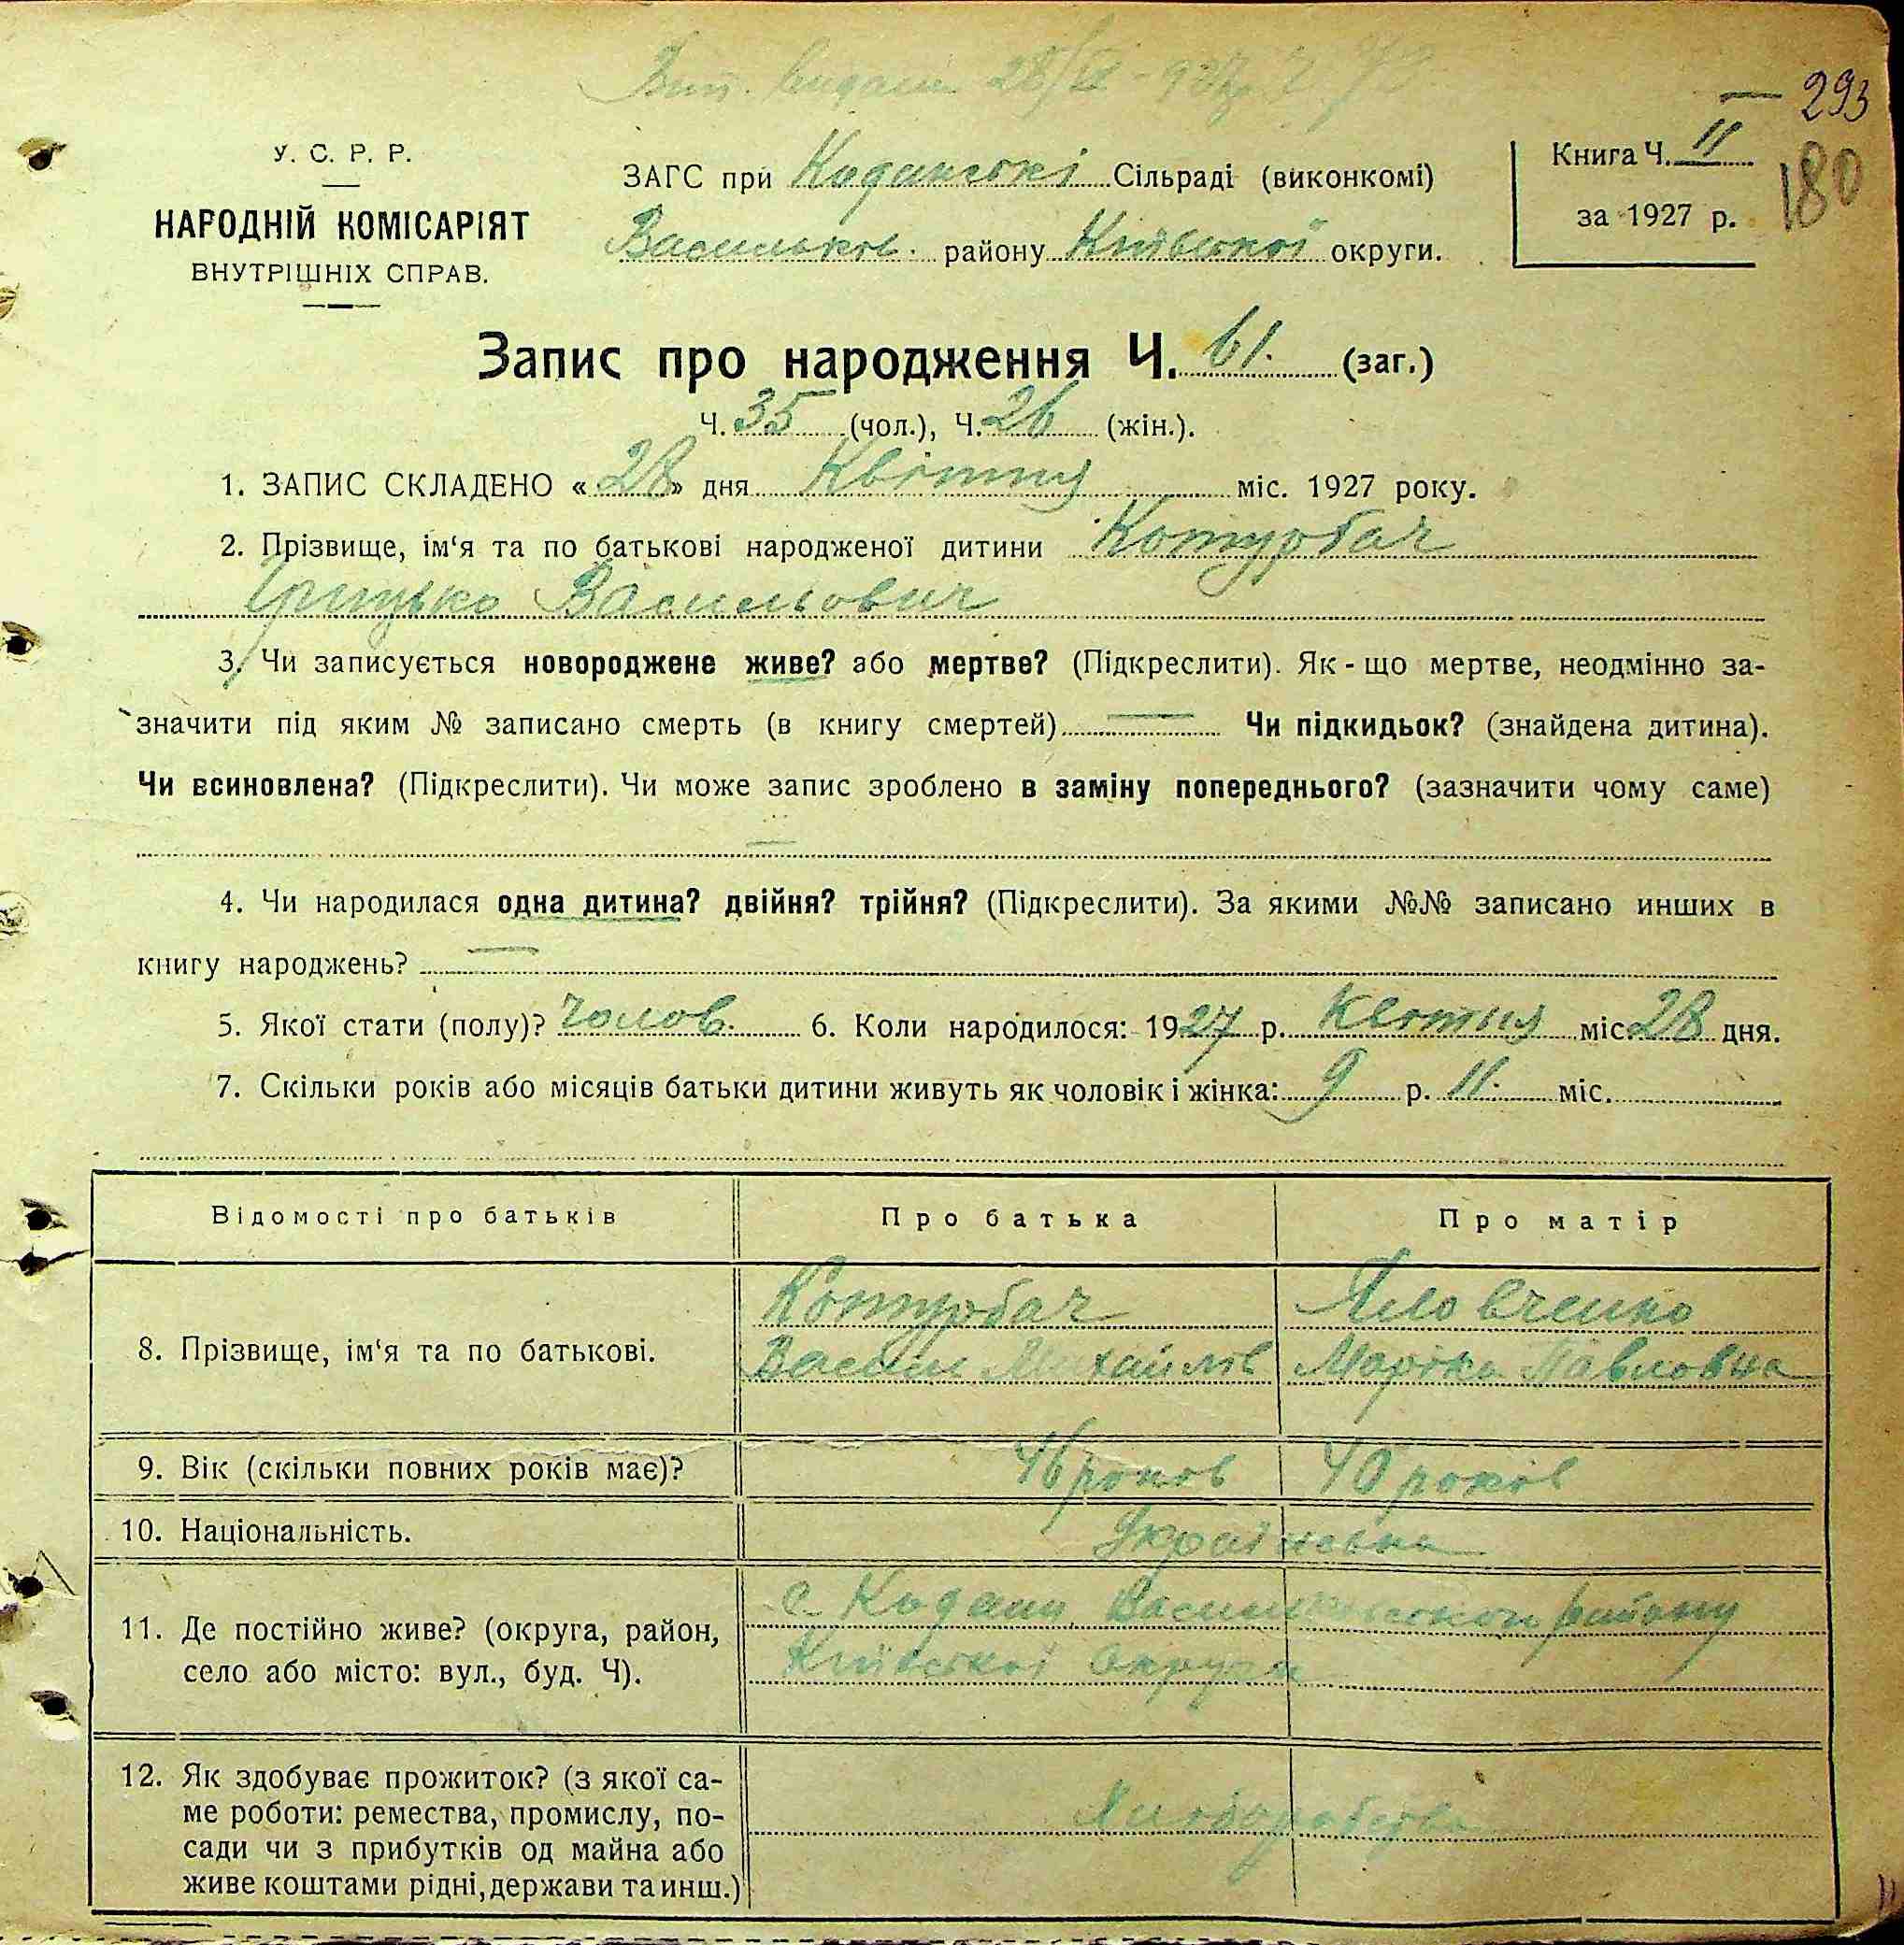 Вип. видана 28/
293
У. С. Р. Р.
НАРОДНІЙ КОМІСАРІЯТ
ВНУТРІШНІХ СПРАВ.
ЗАГС при Коданські Сільраді (виконкомі)
Васильков. району Київської округи.
Книга Ч. II
за 1927 р.
180
Запис про народження Ч. 61. (заг.)
Ч. 35 (чол.), Ч. 26 (жін.).
1. ЗАПИС СКЛАДЕНО «28» дня Квітня міс. 1927 року.
2. Прізвище, ім‘я та по батькові народженої дитини Котурбач
Грицько Васильович
3. Чи записується новороджене живе? або мертве? (Підкреслити). Як-що мертве, неодмінно за-
значити під яким № записано смерть (в книгу смертей) — Чи підкидьок? (знайдена дитина).
Чи всиновлена? (Підкреслити). Чи може запис зроблено в заміну попереднього? (зазначити чому саме)
—
4. Чи народилася одна дитина? двійня? трійня? (Підкреслити). За якими №№ записано инших в
книгу народжень? —
5. Якої стати (полу)? Чолов. 6. Коли народилося: 1927 р. Квітня міс. 28 дня.
7. Скільки років або місяців батьки дитини живуть як чоловік і жінка: 9 р. 11. міс.
Відомості про батьків Про батька Про матір
8. Прізвище, ім‘я та по батькові.
Котурбач
Василь Михайлів
Яловченко
Марійка Павловна
9. Вік (скільки повних років має)? 46 років 40 років
10. Національність. Українська
11. Де постійно живе? (округа, район,
село або місто: вул., буд. Ч).
с. Кодаки Васильківського району
Київської Округи
12. Як здобуває прожиток? (з якої са-
ме роботи: ремества, промислу, по-
сади чи з прибутків од майна або
живе коштами рідні, держави та инш.)
Хліборобство